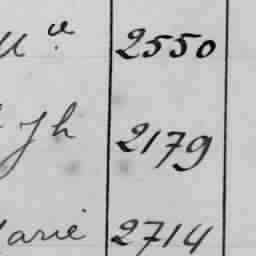 2550
Jh 2179
arie 2714